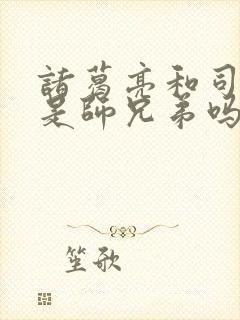 諸葛亮和司
是師兄弟嗎
笙歌